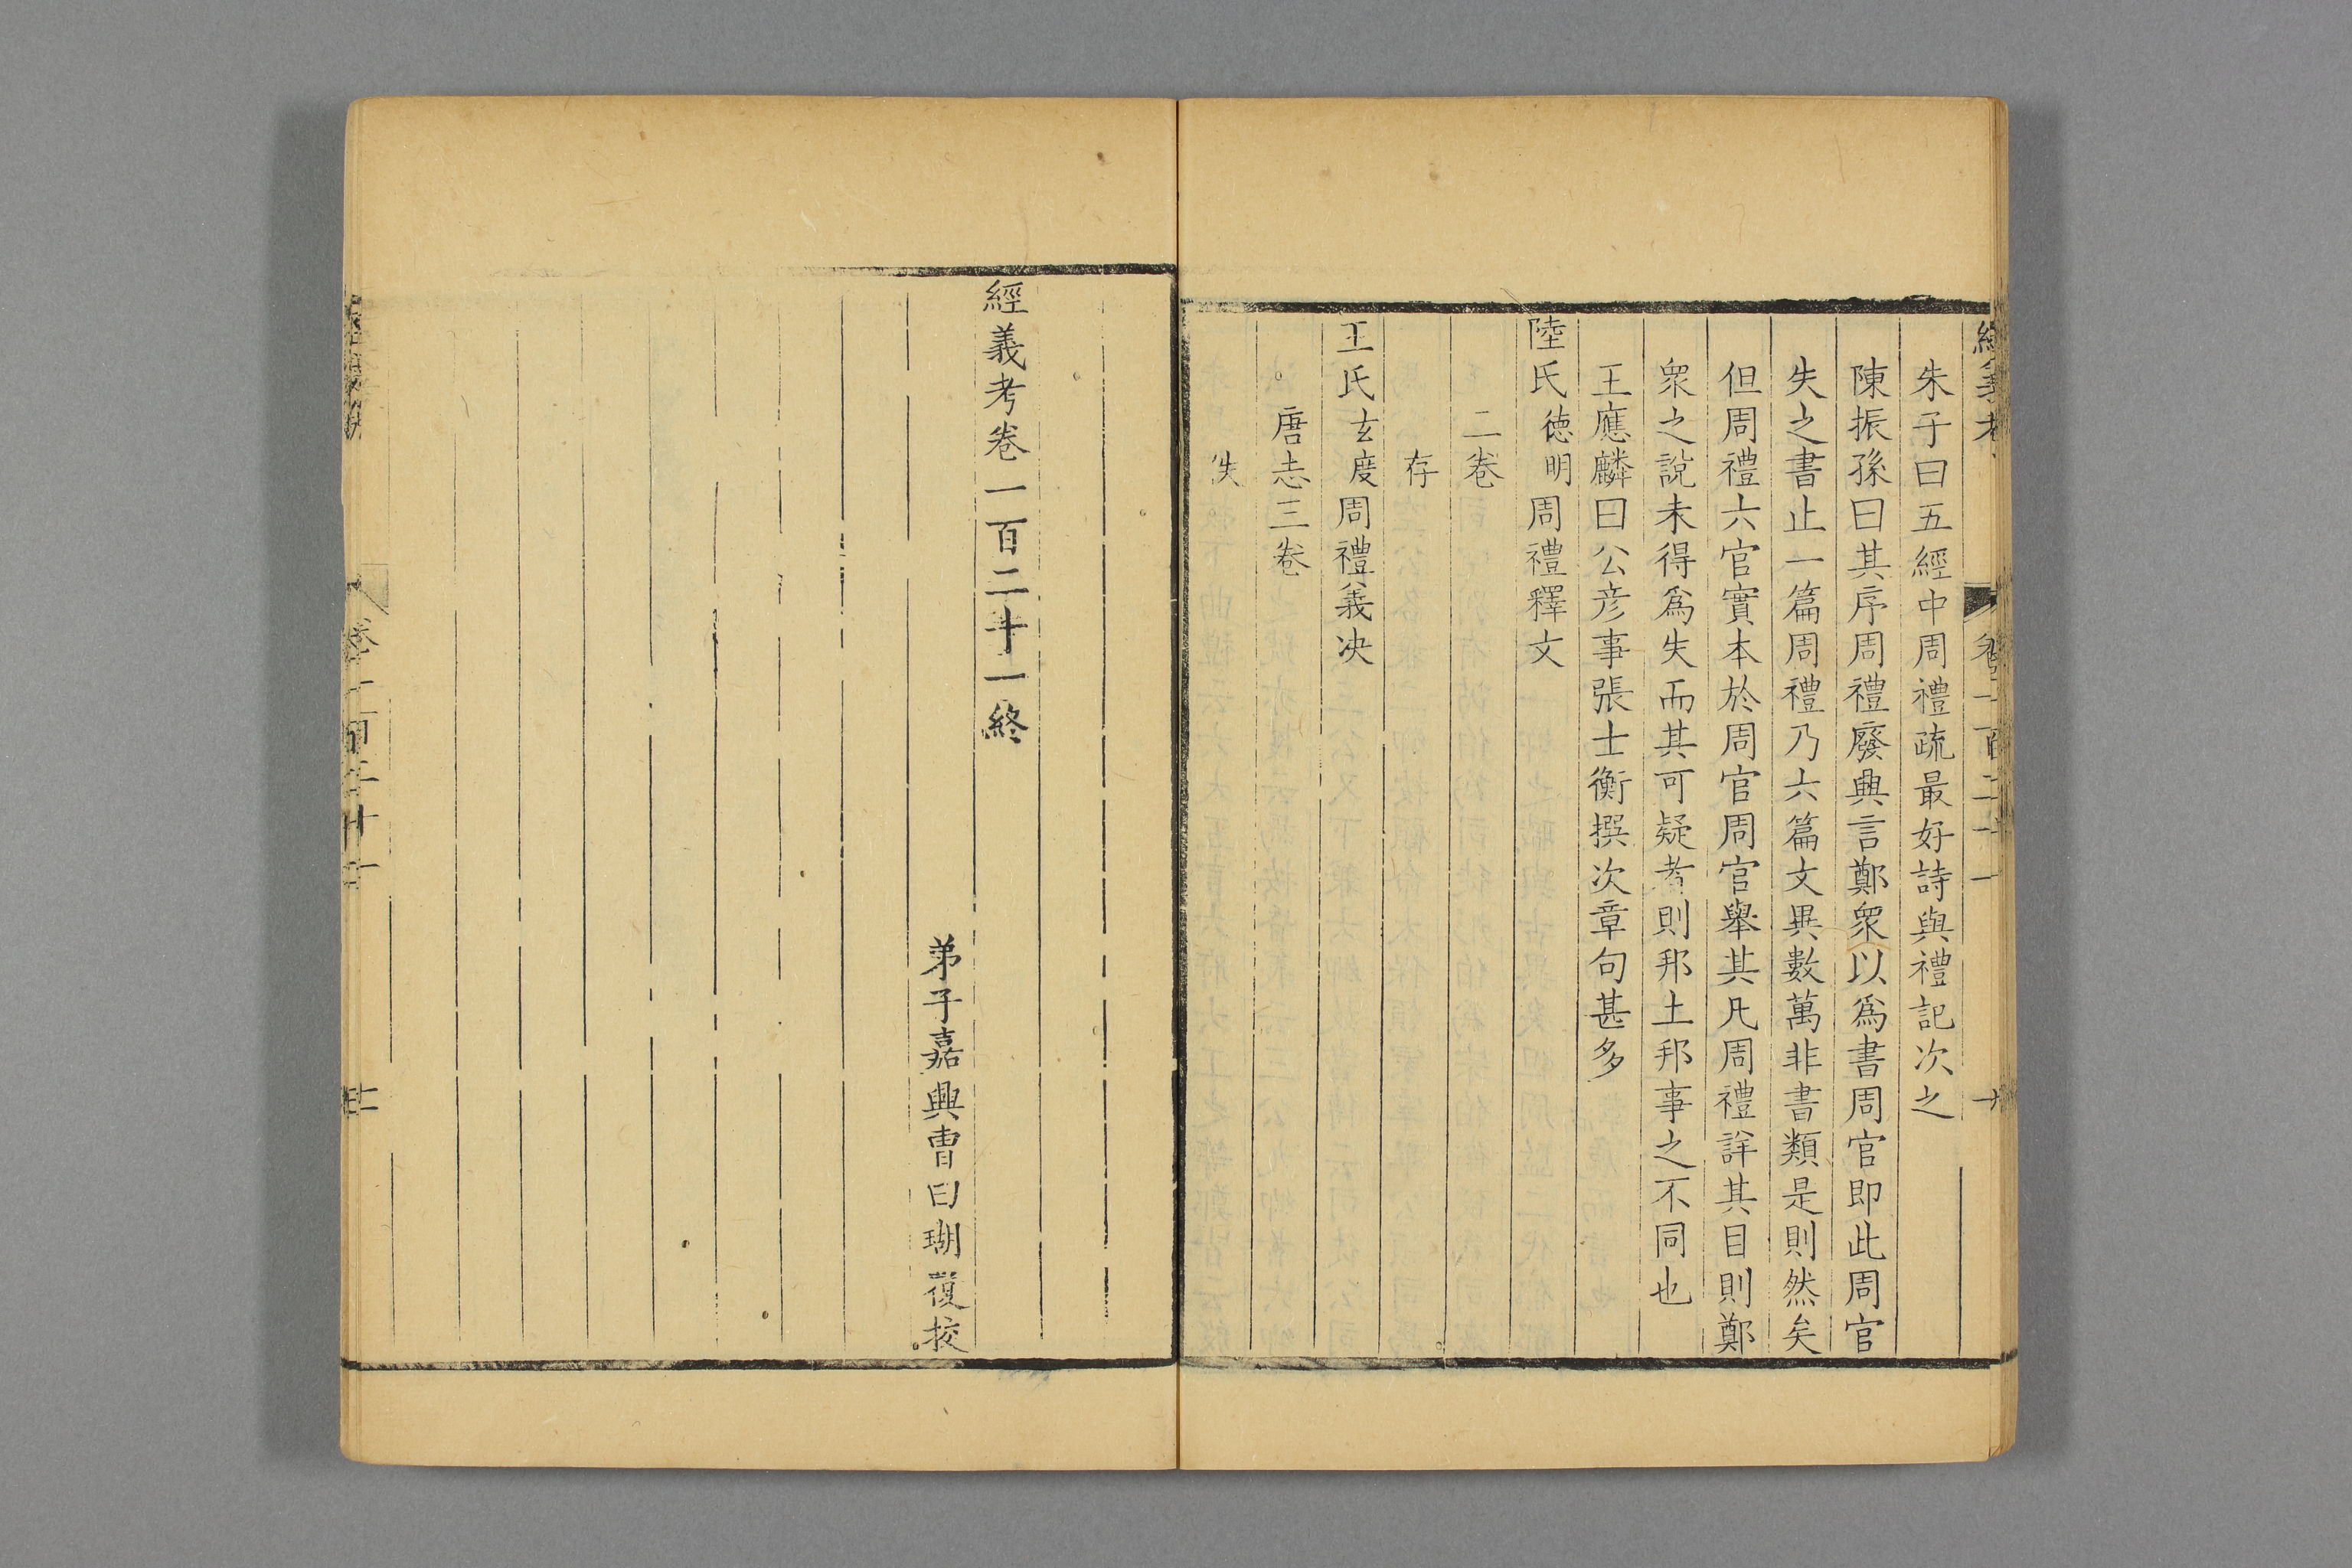 經義考 卷一百二十一
朱子曰五經中周禮疏最好詩與禮記次之
陳振孫曰其序周禮廢興言鄭眾以爲書周官即此周官
失之書止一篇周禮乃六篇文異數萬非書類是則然矣
但周禮六官實本於周官周官舉其凡周禮詳其目則鄭
眾之說未得爲失而其可疑者則邦土邦事之不同也
王應麟曰公彦事張士衡撰次章句甚多
陸氏德明周禮釋文
二卷
存
王氏玄度周禮義決
唐志三卷
佚
經義考卷一百二十一終
弟子嘉興曹曰瑚覆挍